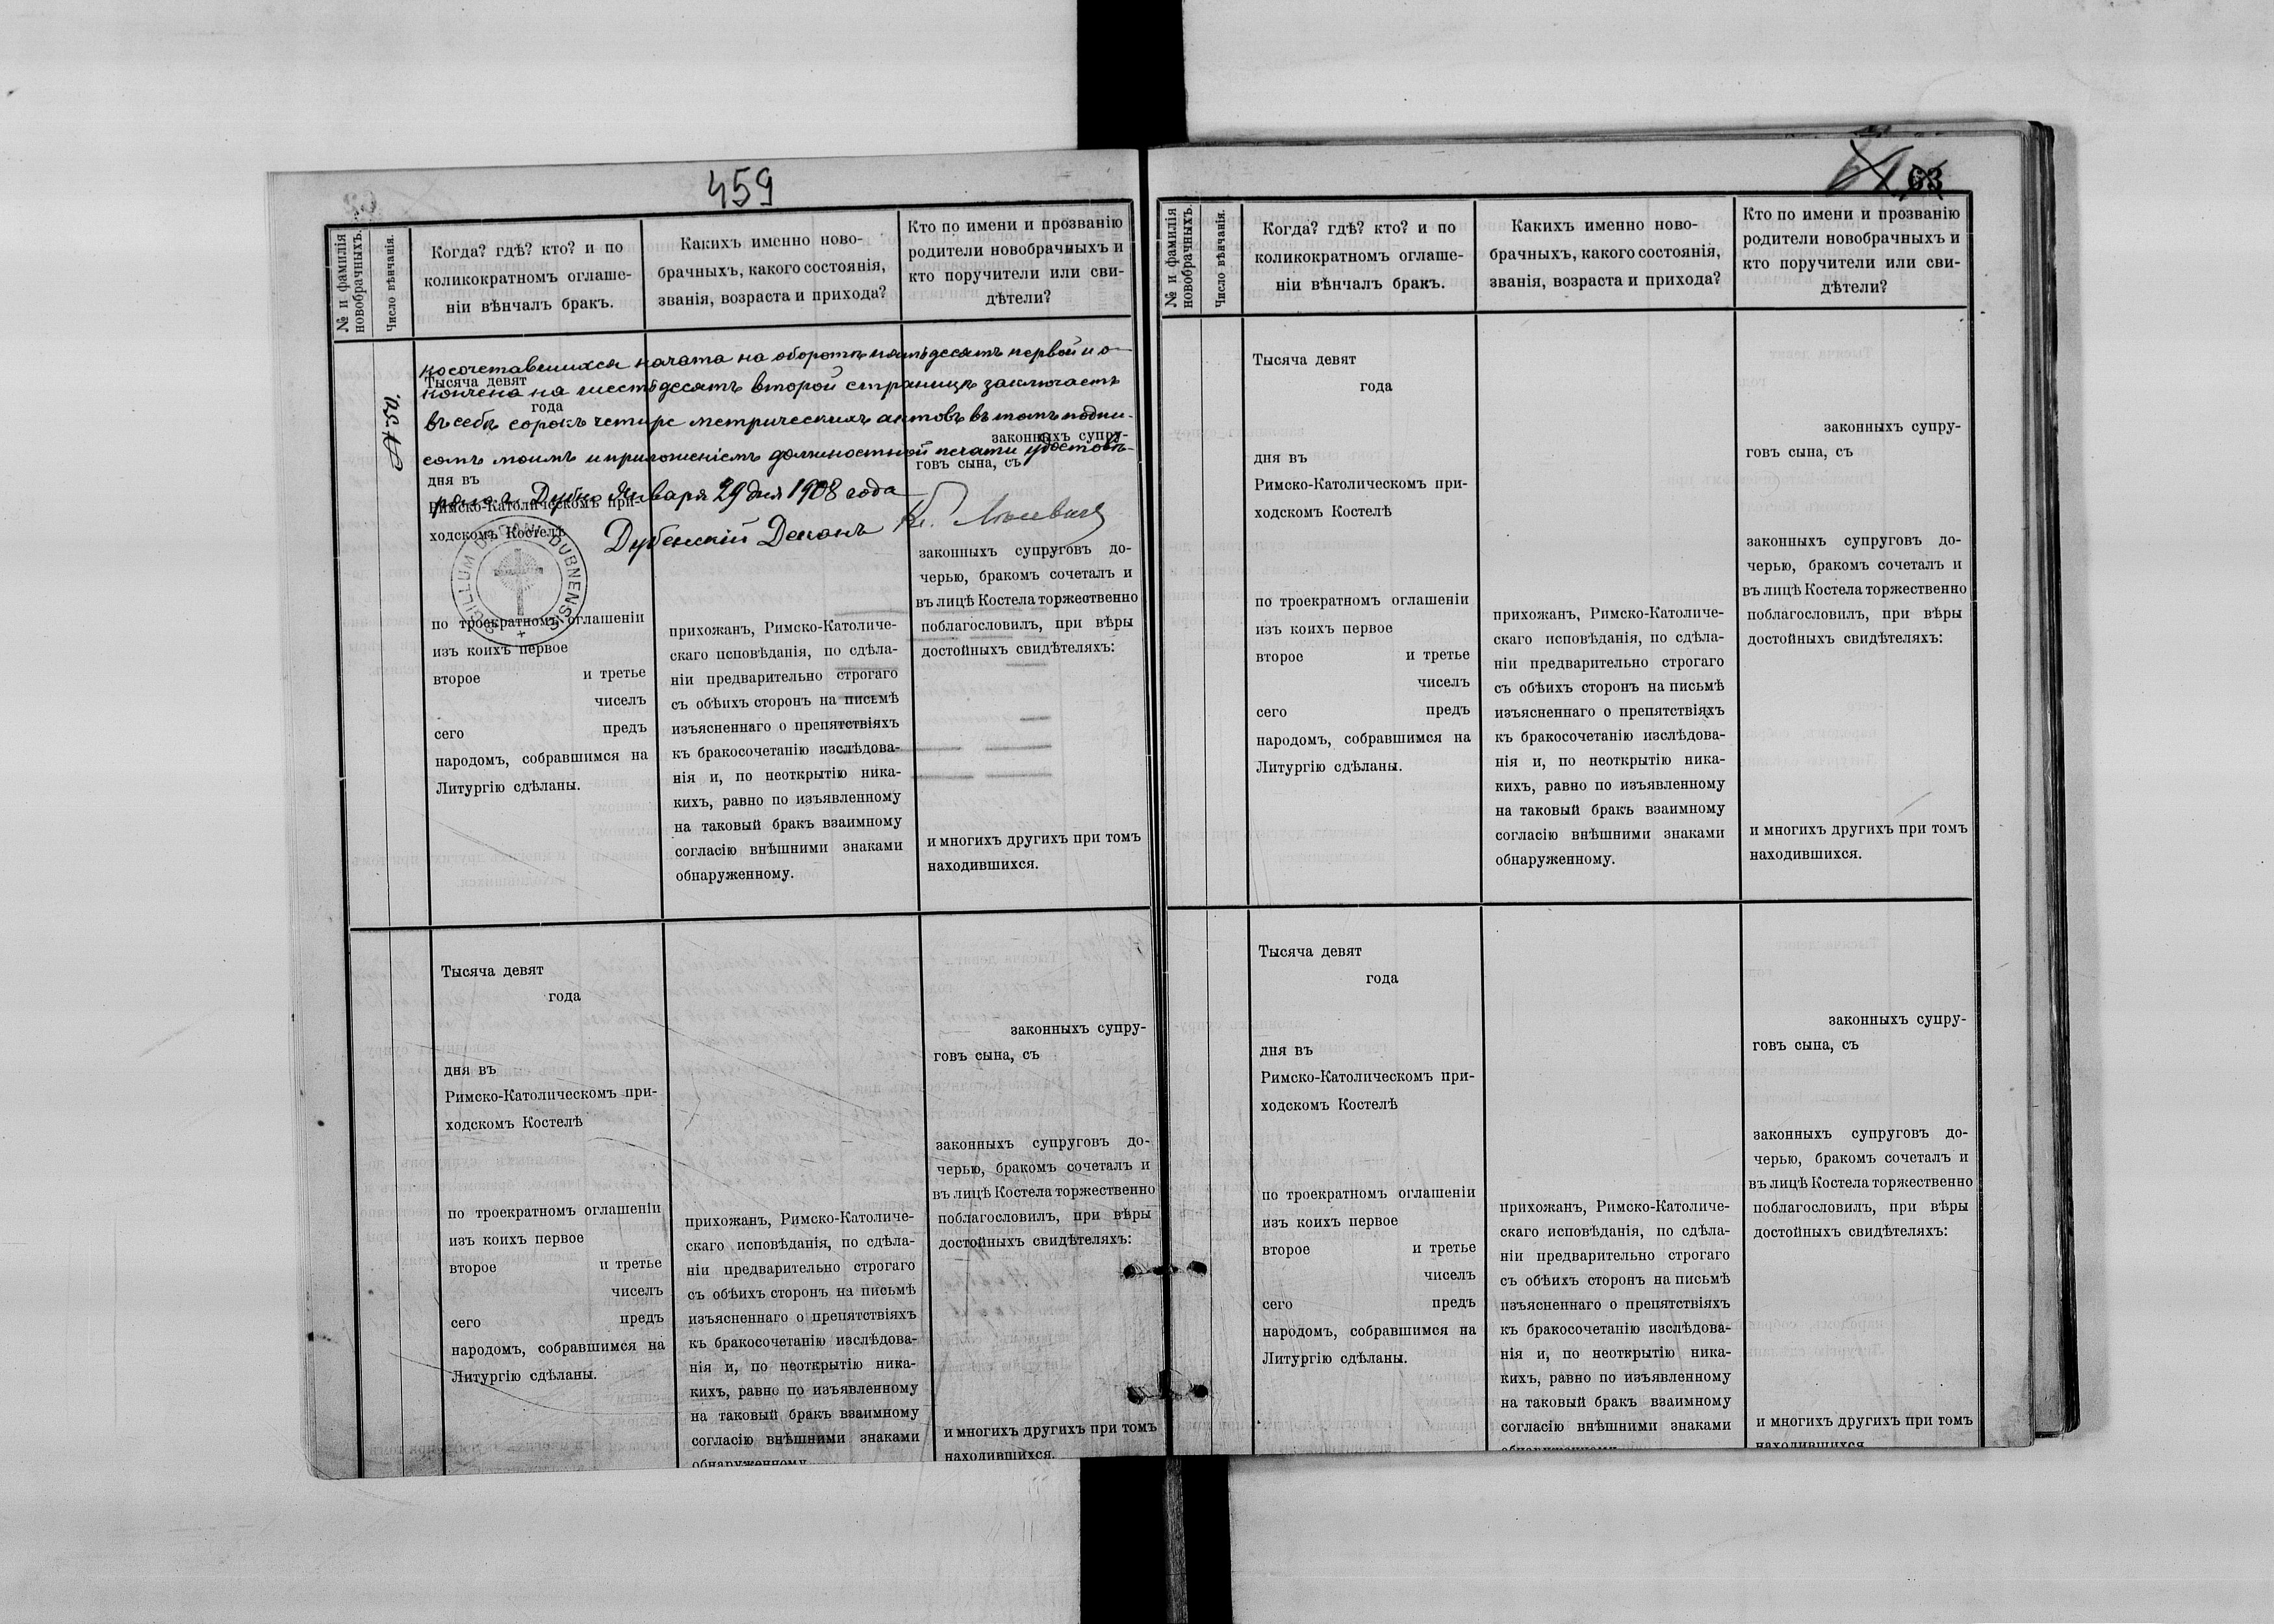 459
№ и фамилія новобрачныхъ.
Число вѣнчанія.
Когда? гдѣ? кто? и по
коликократномъ оглаше-
ніи вѣнчалъ бракъ.
Какихъ именно ново-
брачныхъ, какого состоянія,
званія, возраста и прихода?
Кто по имени и прозванію
родители новобрачныхъ и
кто поручители или сви-
дѣтели?
косочетавшихся начата на оборотѣ пятьдесятъ первой и о-
кончена на шестьдесятъ второй страницѣ заключаетъ
въ себѣ сорокъ четыре метрическихъ актовъ въ томъ подпи-
сомъ моимъ и приложеніемъ должностной печати удостовѣ-
ряю г. Дубно Января 29 дня 1908 года
Дубенскій Деканъ
SIGILLUM DECANI DUBNENSIS
Тысяча девят
года
дня въ
Римско-Католическомъ при-
ходскомъ Костелѣ
по троекратномъ оглашеніи
изъ коихъ первое
второе и третье
чиселъ
сего предъ
народомъ, собравшимся на
Литургію сдѣланы.
прихожанъ, Римско-Католиче-
скаго исповѣданія, по сдѣла-
ніи предварительно строгаго
съ обѣихъ сторонъ на письмѣ
изъясненнаго о препятствіяхъ
къ бракосочетанію изслѣдова-
нія и, по неоткрытію ника-
кихъ, равно по изъявленному
на таковый бракъ взаимному
согласію внѣшними знаками
обнаруженному.
законныхъ супру-
говъ сына, съ
законныхъ супруговъ до-
черью, бракомъ сочеталъ и
въ лицѣ Костела торжественно
поблагословилъ, при вѣры
достойныхъ свидѣтеляхъ:
и многихъ другихъ при томъ
находившихся.
Тысяча девят
года
дня въ
Римско-Католическомъ при-
ходскомъ Костелѣ
по троекратномъ оглашеніи
изъ коихъ первое
второе и третье
чиселъ
сего предъ
народомъ, собравшимся на
Литургію сдѣланы.
прихожанъ, Римско-Католиче-
скаго исповѣданія, по сдѣла-
ніи предварительно строгаго
съ обѣихъ сторонъ на письмѣ
изъясненнаго о препятствіяхъ
къ бракосочетанію изслѣдова-
нія и, по неоткрытію ника-
кихъ, равно по изъявленному
на таковый бракъ взаимному
согласію внѣшними знаками
обнаруженному.
законныхъ супру-
говъ сына, съ
законныхъ супруговъ до-
черью, бракомъ сочеталъ и
въ лицѣ Костела торжественно
поблагословилъ, при вѣры
достойныхъ свидѣтеляхъ:
и многихъ другихъ при томъ
находившихся.
63
№ и фамилія новобрачныхъ.
Число вѣнчанія.
Когда? гдѣ? кто? и по
коликократномъ оглаше-
ніи вѣнчалъ бракъ.
Какихъ именно ново-
брачныхъ, какого состоянія,
званія, возраста и прихода?
Кто по имени и прозванію
родители новобрачныхъ и
кто поручители или сви-
дѣтели?
Тысяча девят
года
дня въ
Римско-Католическомъ при-
ходскомъ Костелѣ
по троекратномъ оглашеніи
изъ коихъ первое
второе и третье
чиселъ
сего предъ
народомъ, собравшимся на
Литургію сдѣланы.
прихожанъ, Римско-Католиче-
скаго исповѣданія, по сдѣла-
ніи предварительно строгаго
съ обѣихъ сторонъ на письмѣ
изъясненнаго о препятствіяхъ
къ бракосочетанію изслѣдова-
нія и, по неоткрытію ника-
кихъ, равно по изъявленному
на таковый бракъ взаимному
согласію внѣшними знаками
обнаруженному.
законныхъ супру-
говъ сына, съ
законныхъ супруговъ до-
черью, бракомъ сочеталъ и
въ лицѣ Костела торжественно
поблагословилъ, при вѣры
достойныхъ свидѣтеляхъ:
и многихъ другихъ при томъ
находившихся.
Тысяча девят
года
дня въ
Римско-Католическомъ при-
ходскомъ Костелѣ
по троекратномъ оглашеніи
изъ коихъ первое
второе и третье
чиселъ
сего предъ
народомъ, собравшимся на
Литургію сдѣланы.
прихожанъ, Римско-Католиче-
скаго исповѣданія, по сдѣла-
ніи предварительно строгаго
съ обѣихъ сторонъ на письмѣ
изъясненнаго о препятствіяхъ
къ бракосочетанію изслѣдова-
нія и, по неоткрытію ника-
кихъ, равно по изъявленному
на таковый бракъ взаимному
согласію внѣшними знаками
законныхъ супру-
говъ сына, съ
законныхъ супруговъ до-
черью, бракомъ сочеталъ и
въ лицѣ Костела торжественно
поблагословилъ, при вѣры
достойныхъ свидѣтеляхъ:
и многихъ другихъ при томъ
находившихся